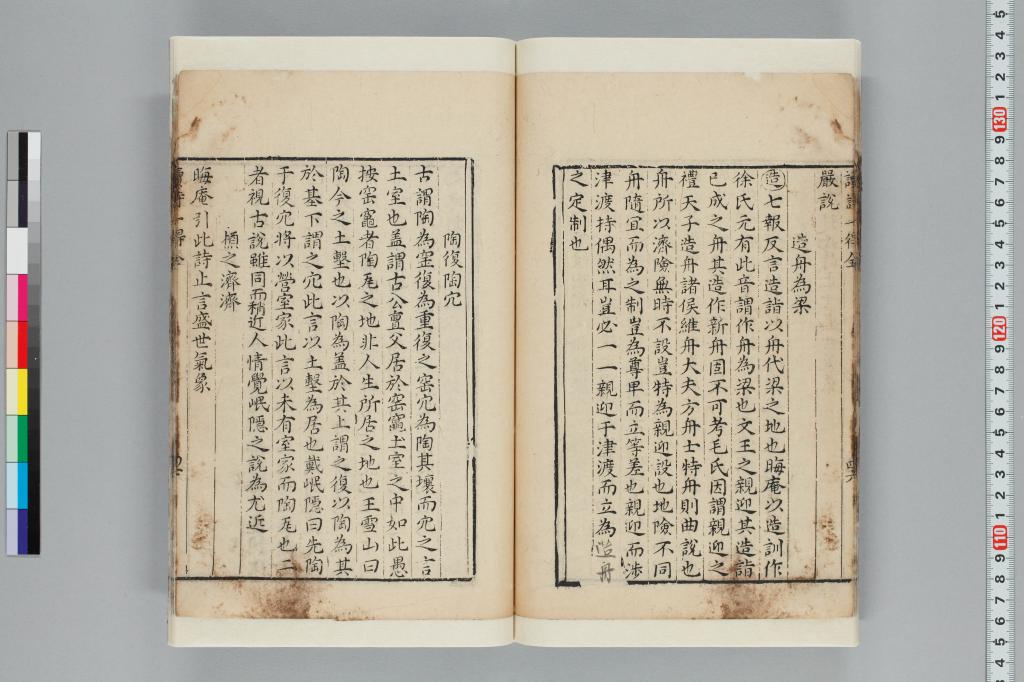 嚴說
造舟為梁
造七報反言造詣以舟代梁之地也晦庵以造訓作
徐氏元有此音謂作舟為梁也文王之親迎其造詣
已成之舟其造作新舟固不可考毛氏因謂親迎之
禮天子造舟諸侯維舟大夫方舟士特舟則曲說也
舟所以濟險無時不設豈特為親迎設也地險不同
舟隨宜而為之制豈為尊卑而立等差也親迎而涉
津渡持偶然耳豈必一一親迎于津渡而立為造舟
之定制也
陶復陶宂
古謂陶為窑復為重復之窑宂為陶其壤而宂之言
土室也盖謂古公亶父居於窑竈土室之中如此愚
按窑竈者陶瓦之地非人生所居之地也王雪山曰
陶今之土墼也以陶為盖於其上謂之復以陶為其
於基下謂之宂此言以土墼為居也戴岷隠曰先陶
于復宂将以營室家此言以未有室家而陶瓦也二
者視古說雖同而稍近人情覺岷隠之說為尤近
槱之濟濟
晦庵引此詩止言盛世氣象